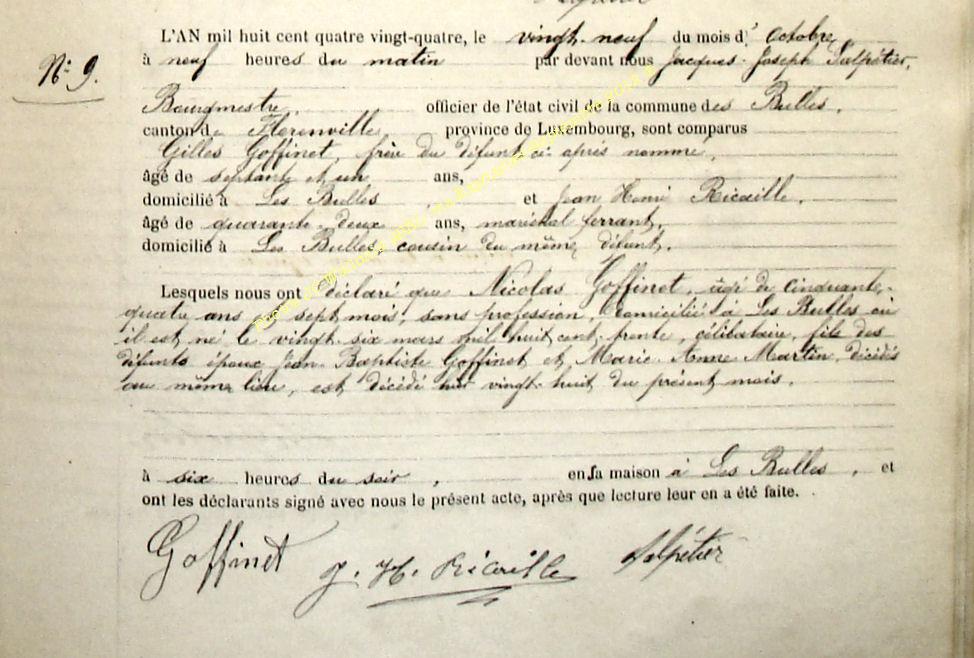 L'AN mil huit cent quatre vingt-quatre, le vingt-neuf du mois d' Octobre,
à neuf heures du matin par devant nous Jacques-Joseph Salpétier,
N° 9.
Bourgmestre, officier de l'état civil de la commune des Bulles,
canton de Florenville, province de Luxembourg, sont comparus
Gilles Goffinet, frère du défunt ci-après nommé,
âgé de septante et un ans,
domicilié à Les Bulles et Jean Henri Ricaille,
âgé de quarante-deux ans, maréchal ferrant,
domicilié à Les Bulles, cousin du même défunt,
Lesquels nous ont déclaré que Nicolas Goffinet, âgé de cinquante-
quatre ans & sept mois, sans profession, domicilié à Les Bulles où
il est né le vingt-six mars mil huit cent trente, célibataire, fils des
défunts époux Jean-Baptiste Goffinet et Marie-Anne Martin, décédés
au même lieu, est décédé hier vingt-huit du présent mois,
à six heures du soir, en sa maison à Les Bulles, et
ont les déclarants signé avec nous le présent acte, après que lecture leur en a été faite.
Goffinet J. H. Ricaille Salpétier